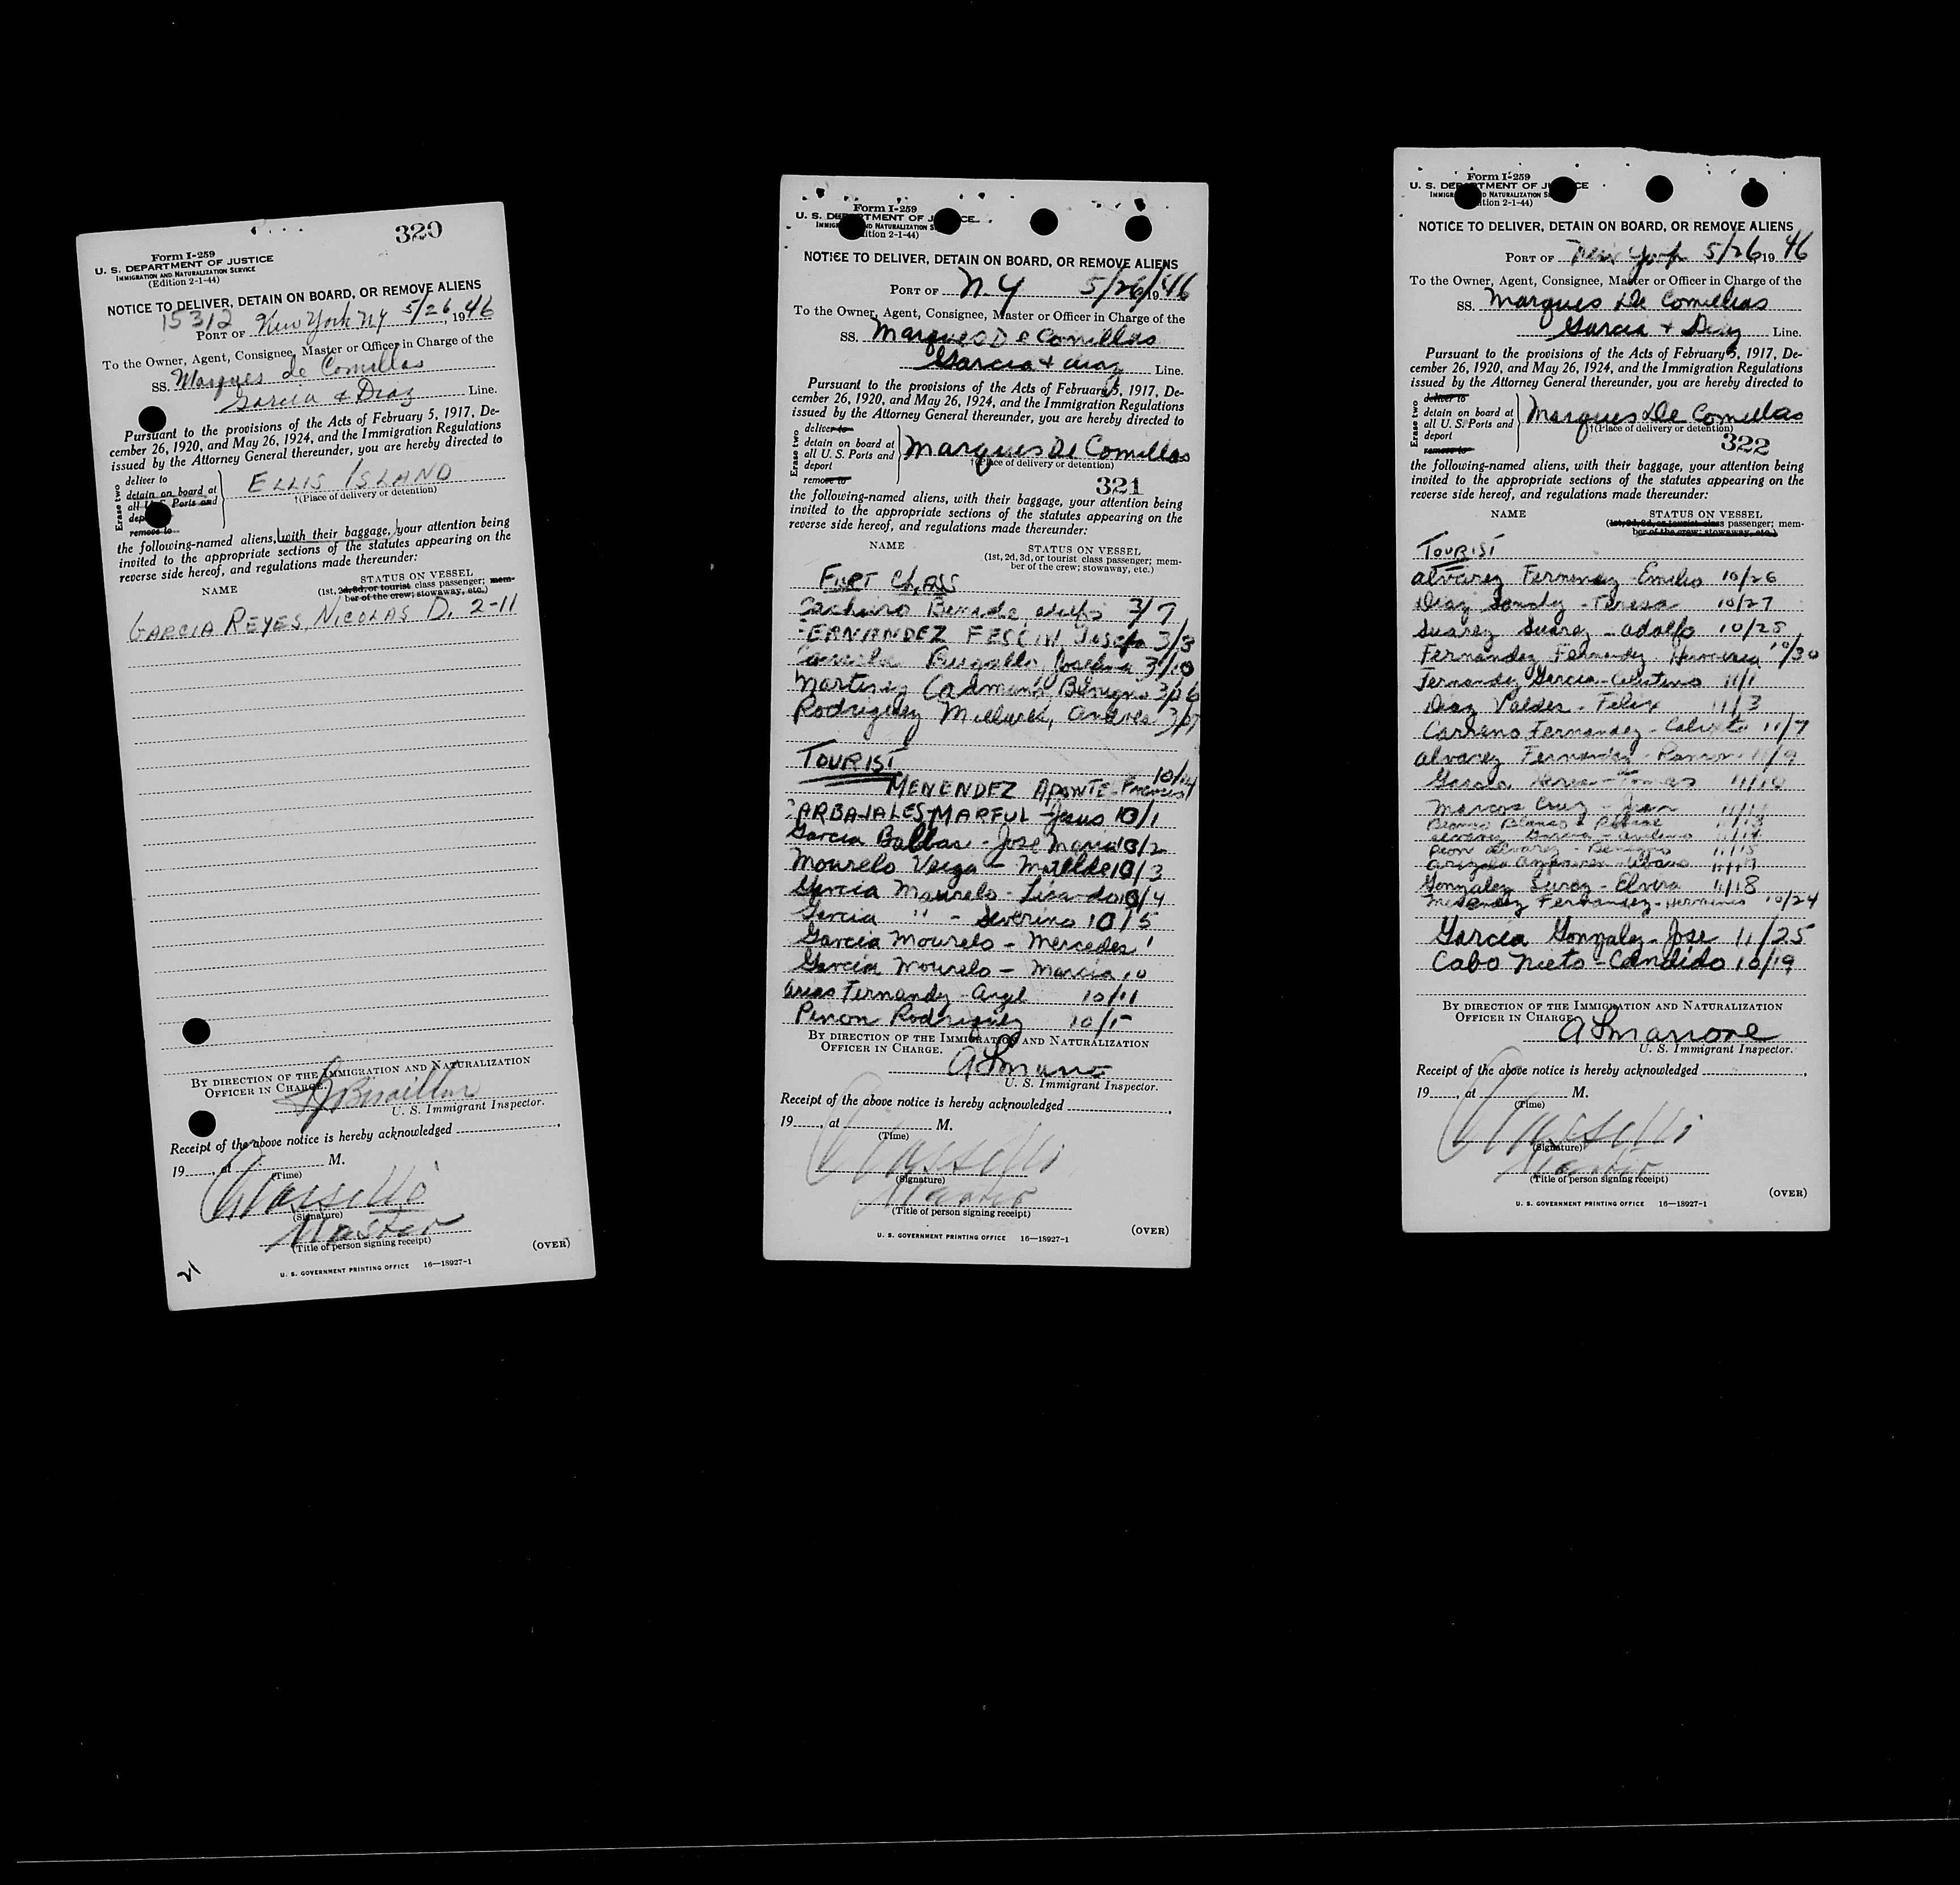 320
Form I-259
U. S. DEPARTMENT OF JUSTICE
IMMIGRATION AND NATURALIZATION SERVICE
(Edition 2-1-44)
NOTICE TO DELIVER, DETAIN ON BOARD, OR REMOVE ALIENS
15312
PORT OF New York NY 5/26, 1946
To the Owner, Agent, Consignee, Master or Officer in Charge of the
SS. Marques de Comillas
Garcia & Diaz Line.
Pursuant to the provisions of the Acts of February 5, 1917, De-
cember 26, 1920, and May 26, 1924, and the Immigration Regulations
issued by the Attorney General thereunder, you are hereby directed to
Erase two
deliver to
detain on board at
all U. S. Ports and
remove to
ELLIS ISLAND
†(Place of delivery or detention)
the following-named aliens, with their baggage, your attention being
invited to the appropriate sections of the statutes appearing on the
reverse side hereof, and regulations made thereunder:
NAME STATUS ON VESSEL
(1st, 2d, 3d, or tourist class passenger; mem-
ber of the crew; stowaway, etc.)
GARCIA REYES, NICOLAS D. 2-11
BY DIRECTION OF THE IMMIGRATION AND NATURALIZATION
OFFICER IN CHARGE.
U. S. Immigrant Inspector.
Receipt of the above notice is hereby acknowledged
19, at M.
(Time)
(Signature)
Master
(Title of person signing receipt)
(OVER)
U. S. GOVERNMENT PRINTING OFFICE 16—18927-1
Form I-259
U. S. DEPARTMENT OF JUSTICE
NATURALIZATION SERVICE
NOTICE TO DELIVER, DETAIN ON BOARD, OR REMOVE ALIENS
PORT OF N.Y 5/26/1946
To the Owner, Agent, Consignee, Master or Officer in Charge of the
SS. Marques De Comillas
Garcia & diaz Line.
Pursuant to the provisions of the Acts of February 5, 1917, De-
cember 26, 1920, and May 26, 1924, and the Immigration Regulations
issued by the Attorney General thereunder, you are hereby directed to
Erase two
deliver to
detain on board at
all U. S. Ports and
deport
remove to
Marques De Comillas
†(Place of delivery or detention)
321
the following-named aliens, with their baggage, your attention being
invited to the appropriate sections of the statutes appearing on the
reverse side hereof, and regulations made thereunder:
NAME STATUS ON VESSEL
(1st, 2d, 3d, or tourist class passenger; mem-
ber of the crew; stowaway, etc.)
CLASS
3/7
FERNANDEZ 3/3
3/10
Martinez Benigno 3/26
Rodriguez Andres
TOURIST 10/24
MENENDEZ APONTE
CARBAJALES MARFUL - Jesus 10/1
Garcia Balbas - Jose Maria 10/2
Mourelo Veiga - Matilde 10/3
Garcia Mourelo - 10/4
Garcia " - Severino 10/5
Garcia Mourelo - Mercedes
Garcia Mourelo - Maria 10
Arias Fernandez - Angel 10/11
Rodriguez 10/15
BY DIRECTION OF THE IMMIGRATION AND NATURALIZATION
OFFICER IN CHARGE.
U. S. Immigrant Inspector.
Receipt of the above notice is hereby acknowledged
19, at M.
(Time)
(Signature)
Master
(Title of person signing receipt)
(OVER)
U. S. GOVERNMENT PRINTING OFFICE 16—18927-1
Form I-259
U. S. DEPARTMENT OF JUSTICE
NATURALIZATION SERVICE
NOTICE TO DELIVER, DETAIN ON BOARD, OR REMOVE ALIENS
PORT OF New York 5/26 1946
To the Owner, Agent, Consignee, Master or Officer in Charge of the
SS. Marques De Comillas
Garcia & Diaz Line.
Pursuant to the provisions of the Acts of February 5, 1917, De-
cember 26, 1920, and May 26, 1924, and the Immigration Regulations
issued by the Attorney General thereunder, you are hereby directed to
Erase two
deliver to
detain on board at
all U. S. Ports and
deport
remove to
Marques De Comillas
†(Place of delivery or detention)
322
the following-named aliens, with their baggage, your attention being
invited to the appropriate sections of the statutes appearing on the
reverse side hereof, and regulations made thereunder:
NAME STATUS ON VESSEL
(1st, 2d, 3d, or tourist class passenger; mem-
ber of the crew; stowaway, etc.)
TOURIST
Alvarez Fernandez - Emilio 10/26
Diaz - Teresa 10/27
Suarez Suarez - Adolfo 10/28
Fernandez Fernandez 10/30
Fernandez Garcia - Celestino 11/1
Diaz Valdes - Felix 11/3
Carreno Fernandez - Calixto 11/7
Alvarez Fernandez - Ramon 11/9
Garcia - Tomas 11/10
Marcos Cruz - Juan 11/11
11/13
Garcia - 11/14
Peon Alvarez - Benigno 11/15
11/17
Gonzalez - Elvira 11/18
Menendez Fernandez - Herminio 10/24
Garcia Gonzalez - Jose 11/25
Cabo Nieto - Candido 10/19
BY DIRECTION OF THE IMMIGRATION AND NATURALIZATION
OFFICER IN CHARGE.
U. S. Immigrant Inspector.
Receipt of the above notice is hereby acknowledged
19, at M.
(Time)
(Signature)
Master
(Title of person signing receipt)
(OVER)
U. S. GOVERNMENT PRINTING OFFICE 16—18927-1